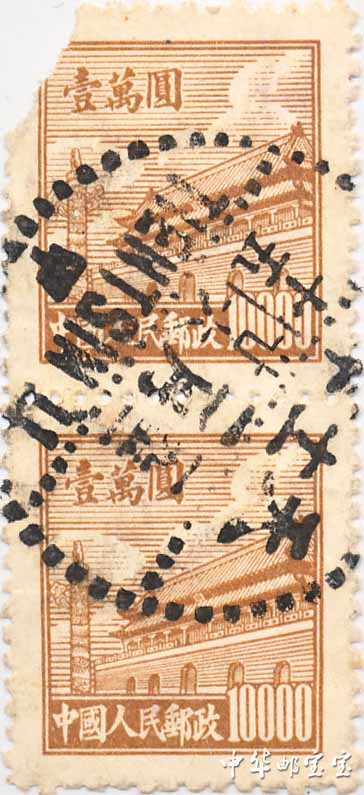 壹萬圓
TIENTSIN
中國人民郵政 10000
壹萬圓
中國人民郵政 10000
中华邮宝宝